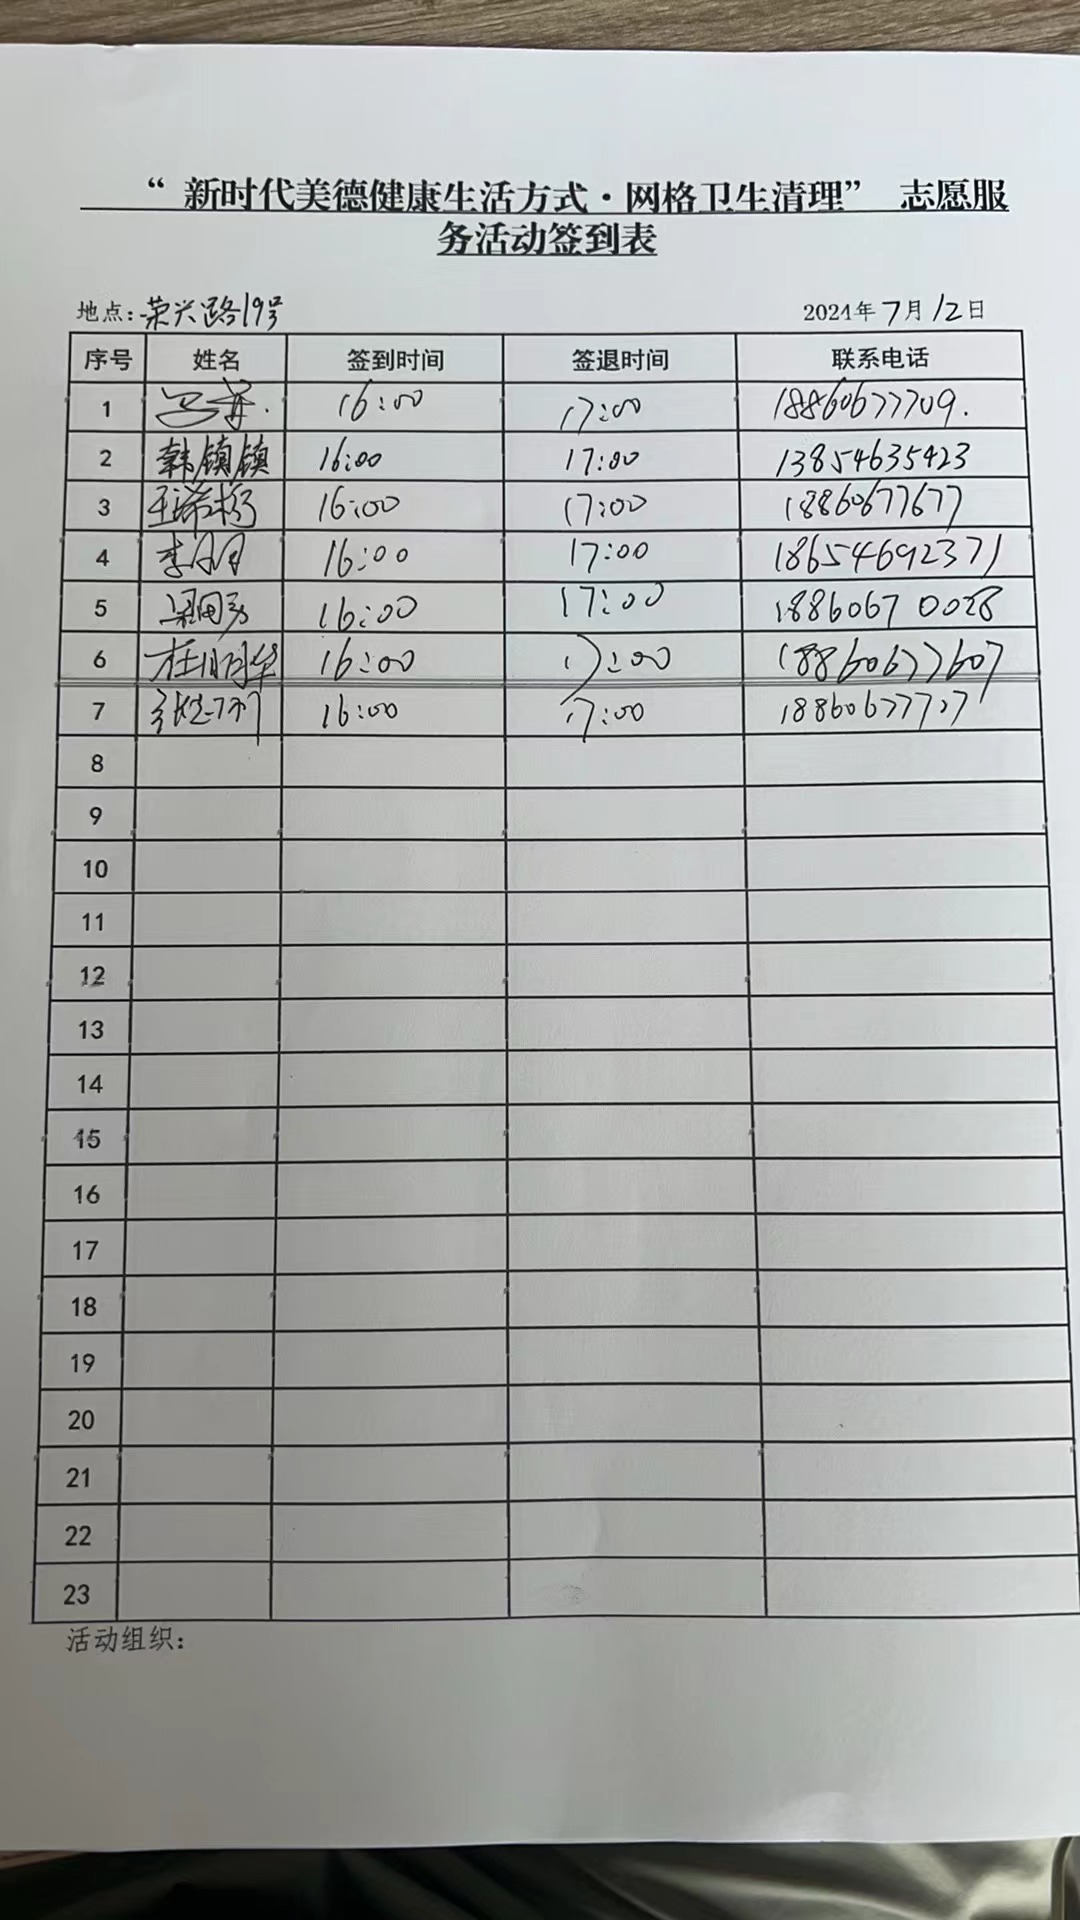 “ 新时代美德健康生活方式·网格卫生清理” 志愿服
务活动签到表
地点:荣兴路19号 2024年7月12日
序号 姓名 签到时间 签退时间 联系电话
1 16:00 17:00 18860677709.
2 韩镇镇 16:00 17:00 13854635423
3 16:00 17:00 18860677677
4 李月月 16:00 17:00 18654692371
5 16:00 17:00 18860670028
6 16:00 17:00 18860677607
7 16:00 17:00
8
9
10
11
12
13
14
15
16
17
18
19
20
21
22
23
活动组织: